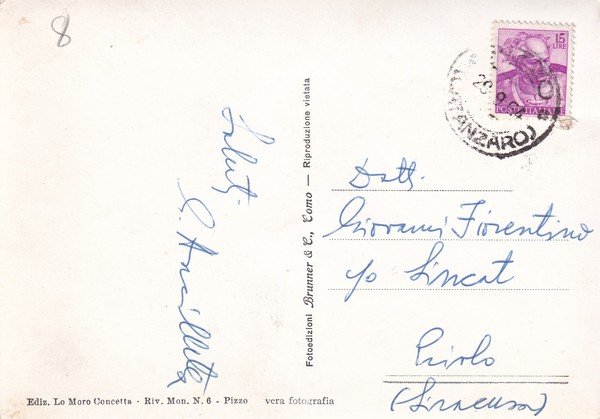 8
15
LIRE
POSTE ITALIANE
(CATANZARO)
Saluti
Fotoedizioni Brunner & C., Como — Riproduzione vietata
Dott.
Giovanni Fiorentino
c/o Sincat
Priolo
(Siracusa)
Ediz. Lo Moro Concetta - Riv. Mon. N. 6 - Pizzo vera fotografia